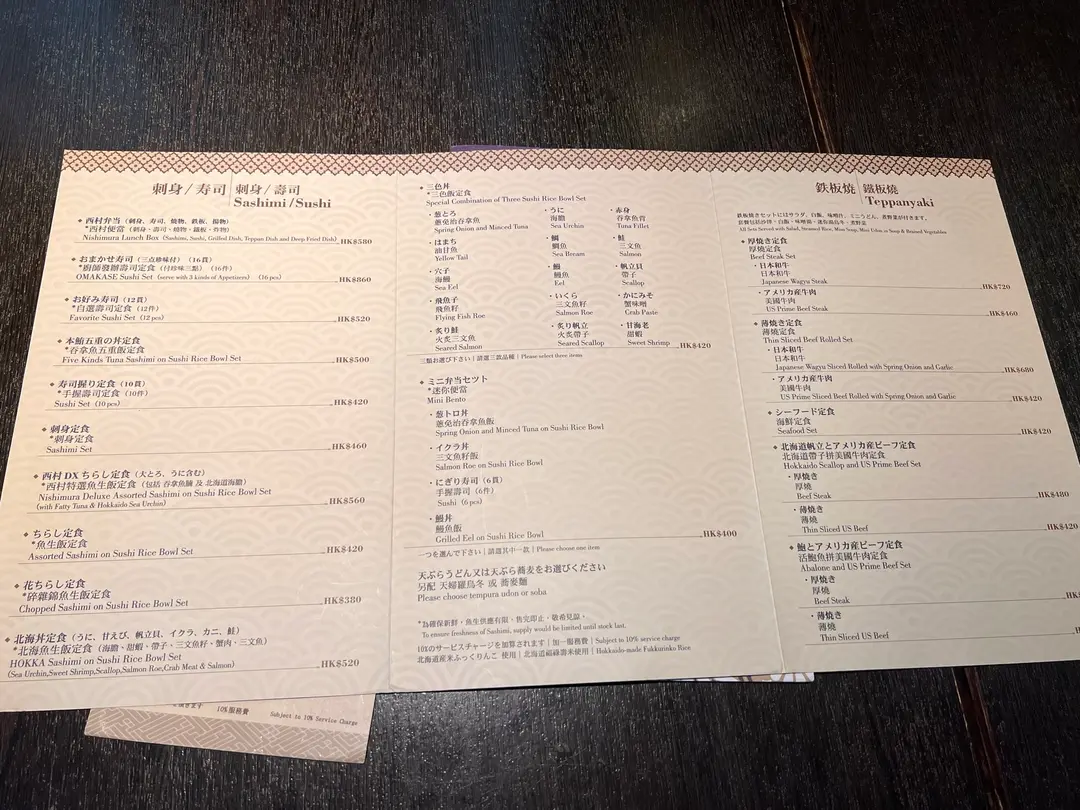 刺身/寿司 刺身/壽司
Sashimi/Sushi
西村弁当（刺身、寿司、燒物、鉄板、揚物）
*西村便當（刺身、壽司、燒物、鐵板、炸物）
Nishimura Lunch Box (Sashimi, Sushi, Grilled Dish, Teppan Dish and Deep Fried Dish) HK$580
おまかせ寿司（三点珍味付）（16貫）
*廚師發辦壽司定食（付珍味三點）（16件）
OMAKASE Sushi Set (serve with 3 kinds of Appetizers) (16 pcs) HK$860
お好み寿司（12貫）
*自選壽司定食（12件）
Favorite Sushi Set (12 pcs) HK$520
本鮪五重の丼定食
*吞拿魚五重飯定食
Five Kinds Tuna Sashimi on Sushi Rice Bowl Set HK$500
寿司握り定食（10貫）
*手握壽司定食（10件）
Sushi Set (10 pcs) HK$420
刺身定食
*刺身定食
Sashimi Set HK$460
西村DXちらし定食（大とろ、うに含む）
*西村特選魚生飯定食（包括 吞拿魚腩 及 北海道海膽）
Nishimura Deluxe Assorted Sashimi on Sushi Rice Bowl Set
(with Fatty Tuna & Hokkaido Sea Urchin) HK$560
ちらし定食
*魚生飯定食
Assorted Sashimi on Sushi Rice Bowl Set HK$420
花ちらし定食
*碎雜錦魚生飯定食
Chopped Sashimi on Sushi Rice Bowl Set HK$380
北海丼定食（うに、甘えび、帆立貝、イクラ、カニ、鮭）
*北海魚生飯定食（海膽、甜蝦、帶子、三文魚籽、蟹肉、三文魚）
HOKKA Sashimi on Sushi Rice Bowl Set
(Sea Urchin,Sweet Shrimp,Scallop,Salmon Roe,Crab Meat & Salmon) HK$520
三色丼
*三色飯定食
Special Combination of Three Sushi Rice Bowl Set
・葱とろ ・うに ・赤身
蔥免治吞拿魚 海膽 吞拿魚背
Spring Onion and Minced Tuna Sea Urchin Tuna Fillet
・はまち ・鯛 ・鮭
油甘魚 鯛魚 三文魚
Yellow Tail Sea Bream Salmon
・穴子 ・鰻 ・帆立貝
海鰻 鰻魚 帶子
Sea Eel Eel Scallop
・飛魚子 ・いくら ・かにみそ
飛魚籽 三文魚籽 蟹味噌
Flying Fish Roe Salmon Roe Crab Paste
・炙り鮭 ・炙り帆立 ・甘海老
火炙三文魚 火炙帶子 甜蝦
Seared Salmon Seared Scallop Sweet Shrimp HK$420
三類お選び下さい | 請選三款品種 | Please select three items
ミニ弁当セット
*迷你便當
Mini Bento
・葱トロ丼
蔥免治吞拿魚飯
Spring Onion and Minced Tuna on Sushi Rice Bowl
・イクラ丼
三文魚籽飯
Salmon Roe on Sushi Rice Bowl
・にぎり寿司（6貫）
手握壽司（6件）
Sushi (6 pcs)
・鰻丼
鰻魚飯
Grilled Eel on Sushi Rice Bowl HK$400
一つを選んで下さい | 請選其中一款 | Please choose one item
天ぷらうどん又は天ぷら蕎麦をお選びください
另配 天婦羅烏冬 或 蕎麥麵
Please choose tempura udon or soba
*為確保新鮮，魚生供應有限，售完即止，敬希見諒。
To ensure freshness of Sashimi, supply would be limited until stock last.
10%のサービスチャージを加算されます | 加一服務費 | Subject to 10% service charge
北海道産米ふっくりんこ 使用 | 北海道福綠壽米使用 | Hokkaido-made Fukkurinko Rice
鉄板燒 鐵板燒
Teppanyaki
鉄板焼きセットにはサラダ、白飯、味噌汁、ミニうどん、煮野菜が付きます。
套餐包括沙律、白飯、味噌湯、迷你湯烏冬、煮野菜
All Sets Served with Salad, Steamed Rice, Miso Soup, Mini Udon in Soup & Braised Vegetables
厚焼き定食
厚燒定食
Beef Steak Set
・日本和牛
日本和牛
Japanese Wagyu Steak HK$720
・アメリカ産牛肉
美國牛肉
US Prime Beef Steak HK$460
薄焼き定食
薄燒定食
Thin Sliced Beef Rolled Set
・日本和牛
日本和牛
Japanese Wagyu Sliced Rolled with Spring Onion and Garlic HK$680
・アメリカ産牛肉
美國牛肉
US Prime Sliced Beef Rolled with Spring Onion and Garlic HK$420
シーフード定食
海鮮定食
Seafood Set HK$420
北海道帆立とアメリカ産ビーフ定食
北海道帶子拼美國牛肉定食
Hokkaido Scallop and US Prime Beef Set
・厚焼き
厚燒
Beef Steak HK$480
・薄焼き
薄燒
Thin Sliced US Beef HK$420
鮑とアメリカ産ビーフ定食
活鮑魚拼美國牛肉定食
Abalone and US Prime Beef Set
・厚焼き
厚燒
Beef Steak
・薄焼き
薄燒
Thin Sliced US Beef
10%服務費 Subject to 10% Service Charge